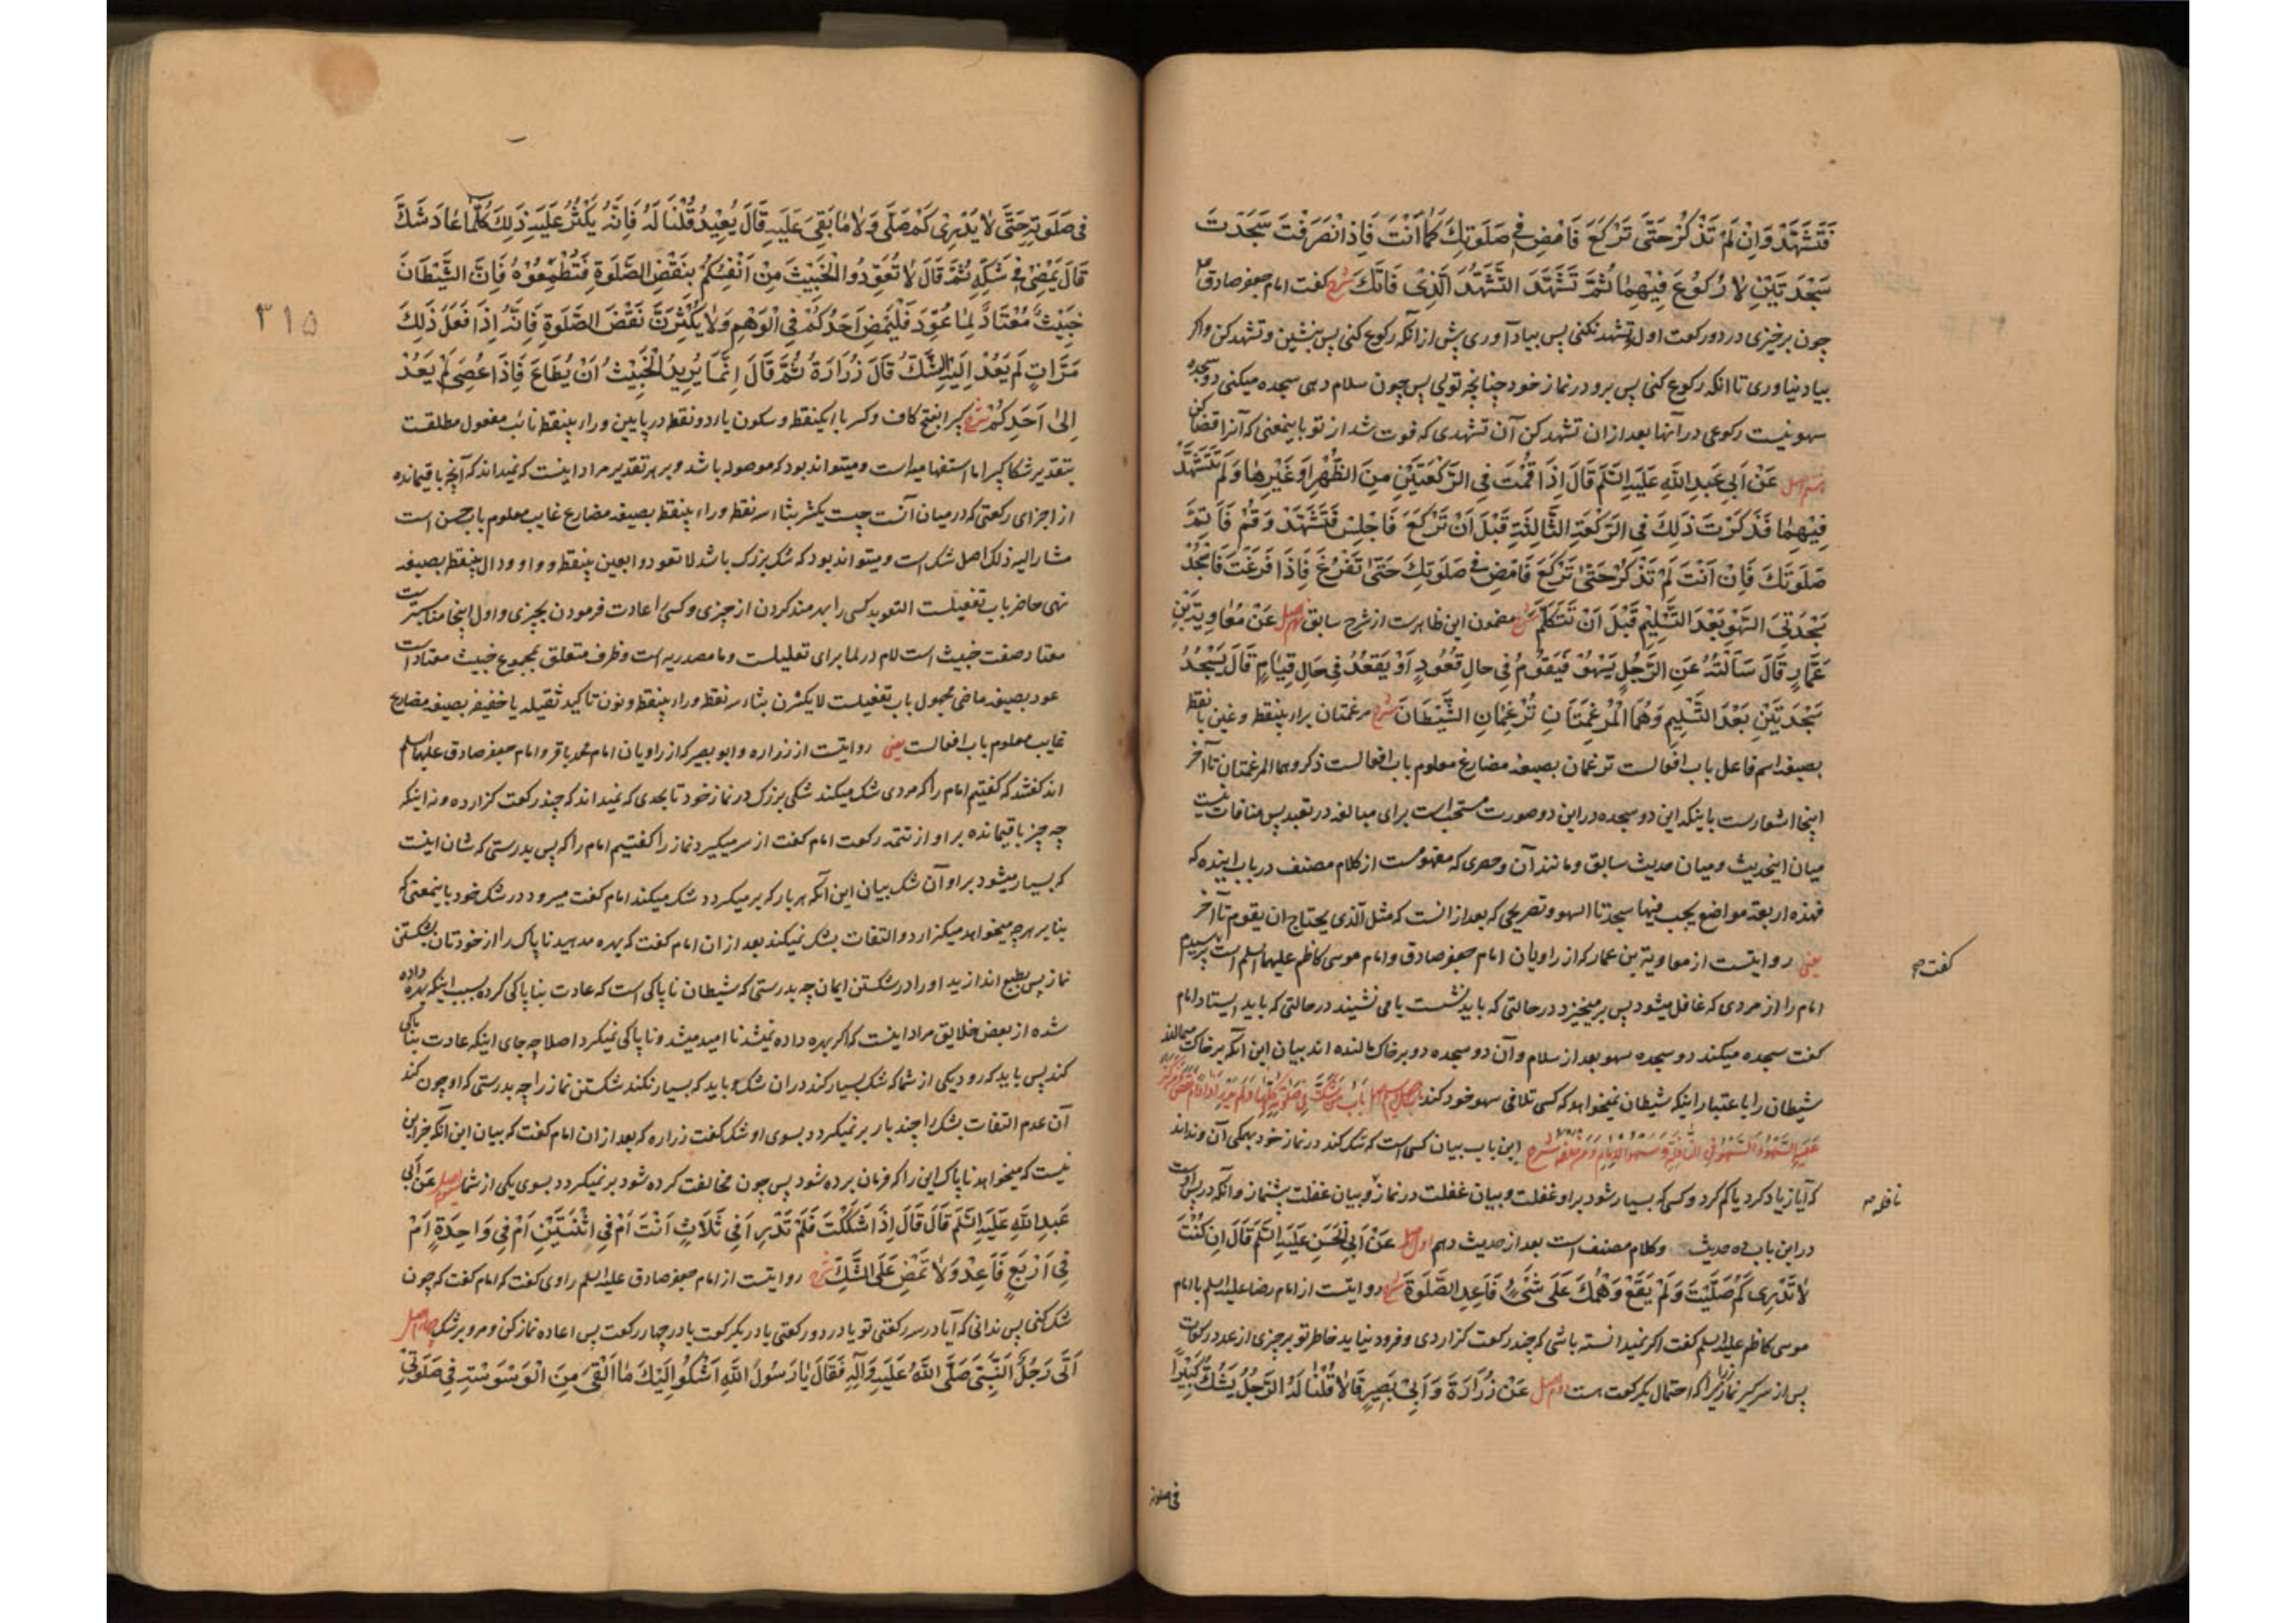 فَتَشَهَّدْ وَاِنْ لَمْ تَذْكُرْ حَتّٰى تَرْكَعَ فَامْضِ فِي صَلَوتِكَ كَمَا اَنْتَ فَاِذَا انْصَرَفْتَ سَجَدْتَ
سَجْدَتَيْنِ لَا رُكُوعَ فِيْهِمَا ثُمَّ تَشَهَّدَ التَّشَهُّدَ الَّذِى فَاتَكَ شرح گفت امام جعفر صادق
چون برخیزی در دو رکعت اول و تشهد نکنی پس بیاد آوری پیش از آنکه رکوع کنی پس بنشین و تشهد کن و اگر
بیاد نیاوری تا انکه رکوع کنی پس برو در نماز خود چنانچه تویی پس چون سلام دهی سجده میکنی دو سجده
سهو نیست رکوعی در آنها بعد از ان تشهد کن آن تشهدی که فوت شد از تو باینمعنی که آنرا قضا کن
عَنْ اَبِى عَبْدِ اللهِ عَلَيْهِ السَّلَمُ قَالَ اِذَا قُمْتَ فِى الرَّكْعَتَيْنِ مِنَ الظُّهْرِ اَوْ غَيْرِهَا وَلَمْ تَتَشَهَّدْ
فِيْهِمَا فَذَكَرْتَ ذٰلِكَ فِى الرَّكْعَةِ الثَّالِثَةِ قَبْلَ اَنْ تَرْكَعَ فَاجْلِسْ فَتَشَهَّدْ وَقُمْ فَاَتِمَّ
صَلَوتَكَ فَاِنْ اَنْتَ لَمْ تَذْكُرْ حَتّٰى تَرْكَعَ فَامْضِ فِي صَلَوتِكَ حَتّٰى تَفْرُغَ فَاِذَا فَرَغْتَ فَاسْجُدْ
سَجْدَتَىِ السَّهْوِ بَعْدَ التَّسْلِيْمِ قَبْلَ اَنْ تَتَكَلَّمَ شرح مضمون این ظاهرست از شرح سابق نهم اصل عَنْ مُعَاوِيَةَ بْنِ
عَمَّارٍ قَالَ سَاَلْتُهُ عَنِ الرَّجُلِ يَسْهُوْ فَيَقُوْمُ فِى حَالِ قُعُوْدٍ اَوْ يَقْعُدُ فِى حَالِ قِيَامٍ قَالَ يَسْجُدُ
سَجْدَتَيْنِ بَعْدَ التَّسْلِيْمِ وَهُمَا الْمُرْغِمَتَانِ تُرْغِمَانِ الشَّيْطَانَ شرح مرغمتان براء بینقطه و غین با نقطه
بصیغه اسم فاعل باب افعالست ترغمان بصیغه مضارع معلوم باب افعالست ذکر وهما المرغمتان تا آخر
اینجا اشعارست باینکه این دو سجده در این دو صورت مستحب است برای مبالغه در تعبد پس منافات نیست
میان اینحدیث و میان حدیث سابق و مانند آن و حصری که مفهومست از کلام مصنف در باب اینده که
فهذه اربعة مواضع یجب فیها سجدتا السهو و تصریحی که بعد از انست که مثل الذی یحتاج ان یقوم تا آخر
یعنی روایتست از معاویة بن عمار که از راویان امام جعفر صادق و امام موسی کاظم علیهما السلم است پرسیدم
امام را از مردی که غافل میشود پس برمیخیزد در حالتی که باید نشست یا می نشیند در حالتی که باید ایستاد امام
گفت سجده میکند دو سجده سهو بعد از سلام و آن دو سجده دو برخاک مالنده اند بیان این آنکه برخاک میمالند
شیطان را با عتبار اینکه شیطان نمیخواهد که کسی تلافی سهو خود کند باب مَنْ شَكَّ فِي صَلَوتِهِ كُلِّهَا وَلَمْ يَدْرِ زَادَ اَوْ نَقَصَ وَمَنْ كَثُرَ
عَلَيْهِ السَّهْوُ وَالسَّهْوُ فِي النَّافِلَةِ وَسَهْوُ الْاِمَامِ وَمَنْ خَلْفَهُ شرح این باب بیان کسی است که شک کند در نماز خود همگی آن و نداند
که آیا زیاد کرد یا کم کرد و کسی که بسیار شود بر او غفلت و بیان غفلت در نماز و بیان غفلت پیشنماز و آنکه در پس اوست
در این باب ده حدیث و کلام مصنف است بعد از حدیث دهم اول اصل عَنْ اَبِى الْحَسَنِ عَلَيْهِ السَّلَمُ قَالَ اِنْ كُنْتَ
لَا تَدْرِى كَمْ صَلَّيْتَ وَلَمْ يَقَعْ وَهْمُكَ عَلَى شَىْءٍ فَاَعِدِ الصَّلٰوةَ شرح روایتست از امام رضا علیه السلم یا امام
موسی کاظم علیه السلم گفت اگر نمیدانسته باشی که چند رکعت گزاردی و فرود نیاید خاطر تو بر چیزی از عدد رکعات
پس از سر گیر نماز را زیرا که احتمال یکرکعت هست دوم اصل عَنْ زُرَارَةَ وَاَبِىْ بَصِيْرٍ قَالَا قُلْنَا لَهُ الرَّجُلُ يَشُكُّ كَثِيْرًا
گفت
نافله
فی صلوته
۳۱۵
فِى صَلَوتِهِ حَتّٰى لَا يَدْرِىْ كَمْ صَلّٰى وَلَا مَا بَقِىَ عَلَيْهِ قَالَ يُعِيْدُ قُلْنَا لَهُ فَاِنَّهُ يَكْثُرُ عَلَيْهِ ذٰلِكَ كُلَّمَا عَادَ شَكَّ
قَالَ يَمْضِىْ فِى شَكِّهِ ثُمَّ قَالَ لَا تُعَوِّدُوا الْخَبِيْثَ مِنْ اَنْفُسِكُمْ بِنَقْضِ الصَّلٰوةِ فَتُطْمِعُوْهُ فَاِنَّ الشَّيْطَانَ
خَبِيْثٌ مُعْتَادٌ لِمَا عُوِّدَ فَلْيَمْضِ اَحَدُكُمْ فِى الْوَهْمِ وَلَا يُكْثِرَنَّ نَقْضَ الصَّلٰوةِ فَاِنَّهُ اِذَا فَعَلَ ذٰلِكَ
مَرَّاتٍ لَمْ يَعُدْ اِلَيْهِ الشَّكُّ قَالَ زُرَارَةُ ثُمَّ قَالَ اِنَّمَا يُرِيْدُ الْخَبِيْثُ اَنْ يُطَاعَ فَاِذَا عُصِىَ لَمْ يَعُدْ
اِلٰى اَحَدِكُمْ شرح کثیرا بفتح کاف و کسر با ایکنقط و سکون یا دو نقط در پایین و راء بینقط نائب مفعول مطلقست
بتقدیر شکا کبیرا ما استفهامیه است و میتواند بود که موصوله باشد و بر هر تقدیر مراد اینست که نمیداند که آنچه باقیمانده
از اجزای رکعتی که در میان آنست چیست یکثر بثاء سه نقطه و راء بینقطه بصیغه مضارع غایب معلوم باب حسن است
مشار الیه ذلک اصل شک است و میتواند بود که شک بزرک باشد لا تعودوا بعین بینقطه و واو و دال بینقطه بصیغه
نهی حاضر باب تفعیلست التعوید کسی را بهره مند کردن از چیزی و کسی را عادت فرمودن بچیزی و اول اینجا مناسبترست
معتاد صفت خبیث است لام در لما برای تعلیلست و ما مصدریه است و ظرف متعلق بمجموع خبیث معتاد است
عود بصیغه ماضی مجهول باب تفعیلست لا یکثرن بثاء سه نقطه و راء بینقطه و نون تاکید ثقیله یا خفیفه بصیغه مضارع
غایب معلوم باب افعالست یعنی روایتست از زراره و ابو بصیر که از راویان امام محمد باقر و امام جعفر صادق علیهما السلم
اند گفتند که گفتیم امام را که مردی شک میکند شکی بزرک در نماز خود تا بحدی که نمیداند که چند رکعت گزارده و نه اینکه
چه چیز باقیمانده بر او از تتمه رکعت امام گفت از سر میگیرد نماز را گفتیم امام را که پس بدرستی که شان اینست
که بسیار میشود بر او آن شک بیان این آنکه هر بار که برمیگردد شک میکند امام گفت میرود در شک خود باینمعنی که
بنا بر هرچه میخواهد میگزارد و التفات بشک نمیکند بعد از ان امام گفت که بهره مدهید ناپاک را از خودتان بشکستن
نماز پس بطمع اندازید او را در شکستن ایمان چه بدرستی که شیطان ناپاکی است که عادت بناپاکی کرده بسبب اینکه بهره داده
شده از بعض خلایق مراد اینست که اگر بهره داده نمیشد ناامید میشد و ناپاکی نمیکرد اصلا چه جای اینکه عادت بناپاکی
کند پس باید که رود یکی از شما که شک بسیار کند در ان شک و باید که بسیار نکند شکستن نماز را چه بدرستی که او چون کند
آن عدم التفات بشک را چند بار برنمیگردد بسوی او شک گفت زراره که بعد از ان امام گفت که بیان این آنکه جز این
نیست که میخواهد ناپاک این را که فرمان برده شود پس چون مخالفت کرده شود برنمیگردد بسوی یکی از شما سیوم اصل عَنْ اَبِى
عَبْدِ اللهِ عَلَيْهِ السَّلَمُ قَالَ قَالَ اِذَا شَكَكْتَ فَلَمْ تَدْرِ اَفِى ثَلَاثٍ اَنْتَ اَمْ فِى اثْنَتَيْنِ اَمْ فِى وَاحِدَةٍ اَمْ
فِى اَرْبَعٍ فَاَعِدْ وَلَا تَمْضِ عَلَى الشَّكِّ شرح روایتست از امام جعفر صادق علیه السلم راوی گفت که امام گفت که چون
شک کنی پس ندانی که آیا در سه رکعتی تو یا در دو رکعتی یا در یکرکعت یا در چهار رکعت پس اعاده نماز کن و مرو بر شک چهارم اصل
اَتٰى رَجُلٌ النَّبِىَّ صَلَّى اللهُ عَلَيْهِ وَآلِهِ فَقَالَ يَا رَسُولَ اللهِ اَشْكُوْ اِلَيْكَ مَا اَلْقٰى مِنَ الْوَسْوَسَةِ فِى صَلَوتِىْ